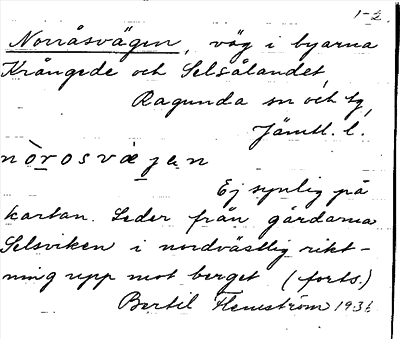 1-2.
Norråsvägen, väg i byarna
Krångede och Selsålandet,
Ragunda sn och tg,
Jämtl. l.
nòrosvæjen
Ej synlig på
kartan. Leder från gårdarna
Selsviken i nordvästlig rikt-
ning upp mot berget (forts.)
Bertil Flemström 193